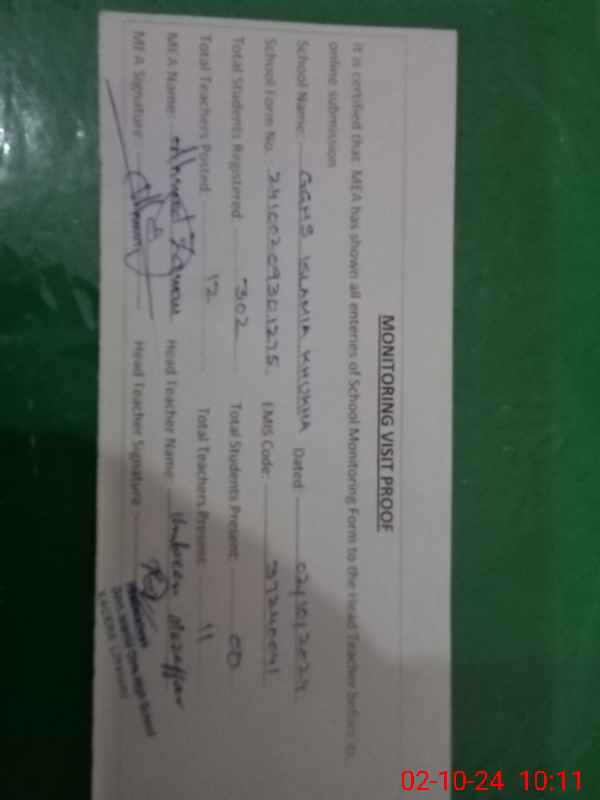 MONITORING VISIT PROOF
It is certified that MEA has shown all enteries of School Monitoring Form to the Head Teacher before its
online submission
School Name: GGHS ISLAMIA KHURHA Dated: 02/10/2024
School Form No. EMIS Code: 37240041
Total Students Registered: 302 Total Students Present: 00
Total Teachers Posted: 12 Total Teachers Present: 11
MEA Name: Ahmad Head Teacher Name: Ambreen Mozaffar
MEA Signature: Head Teacher Signature:
High School
02-10-24 10:11